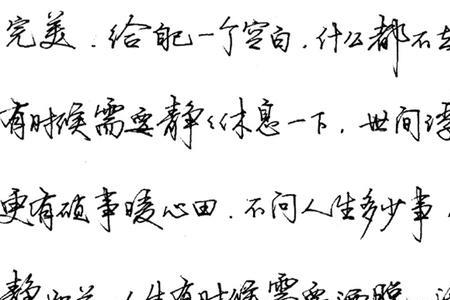 完美．给自己一个空白．什么都不去
有时候需要静々休息一下．世间
更有琐事暖心田．不问人生多少事
静如兰．人生有时候需要洒脱．